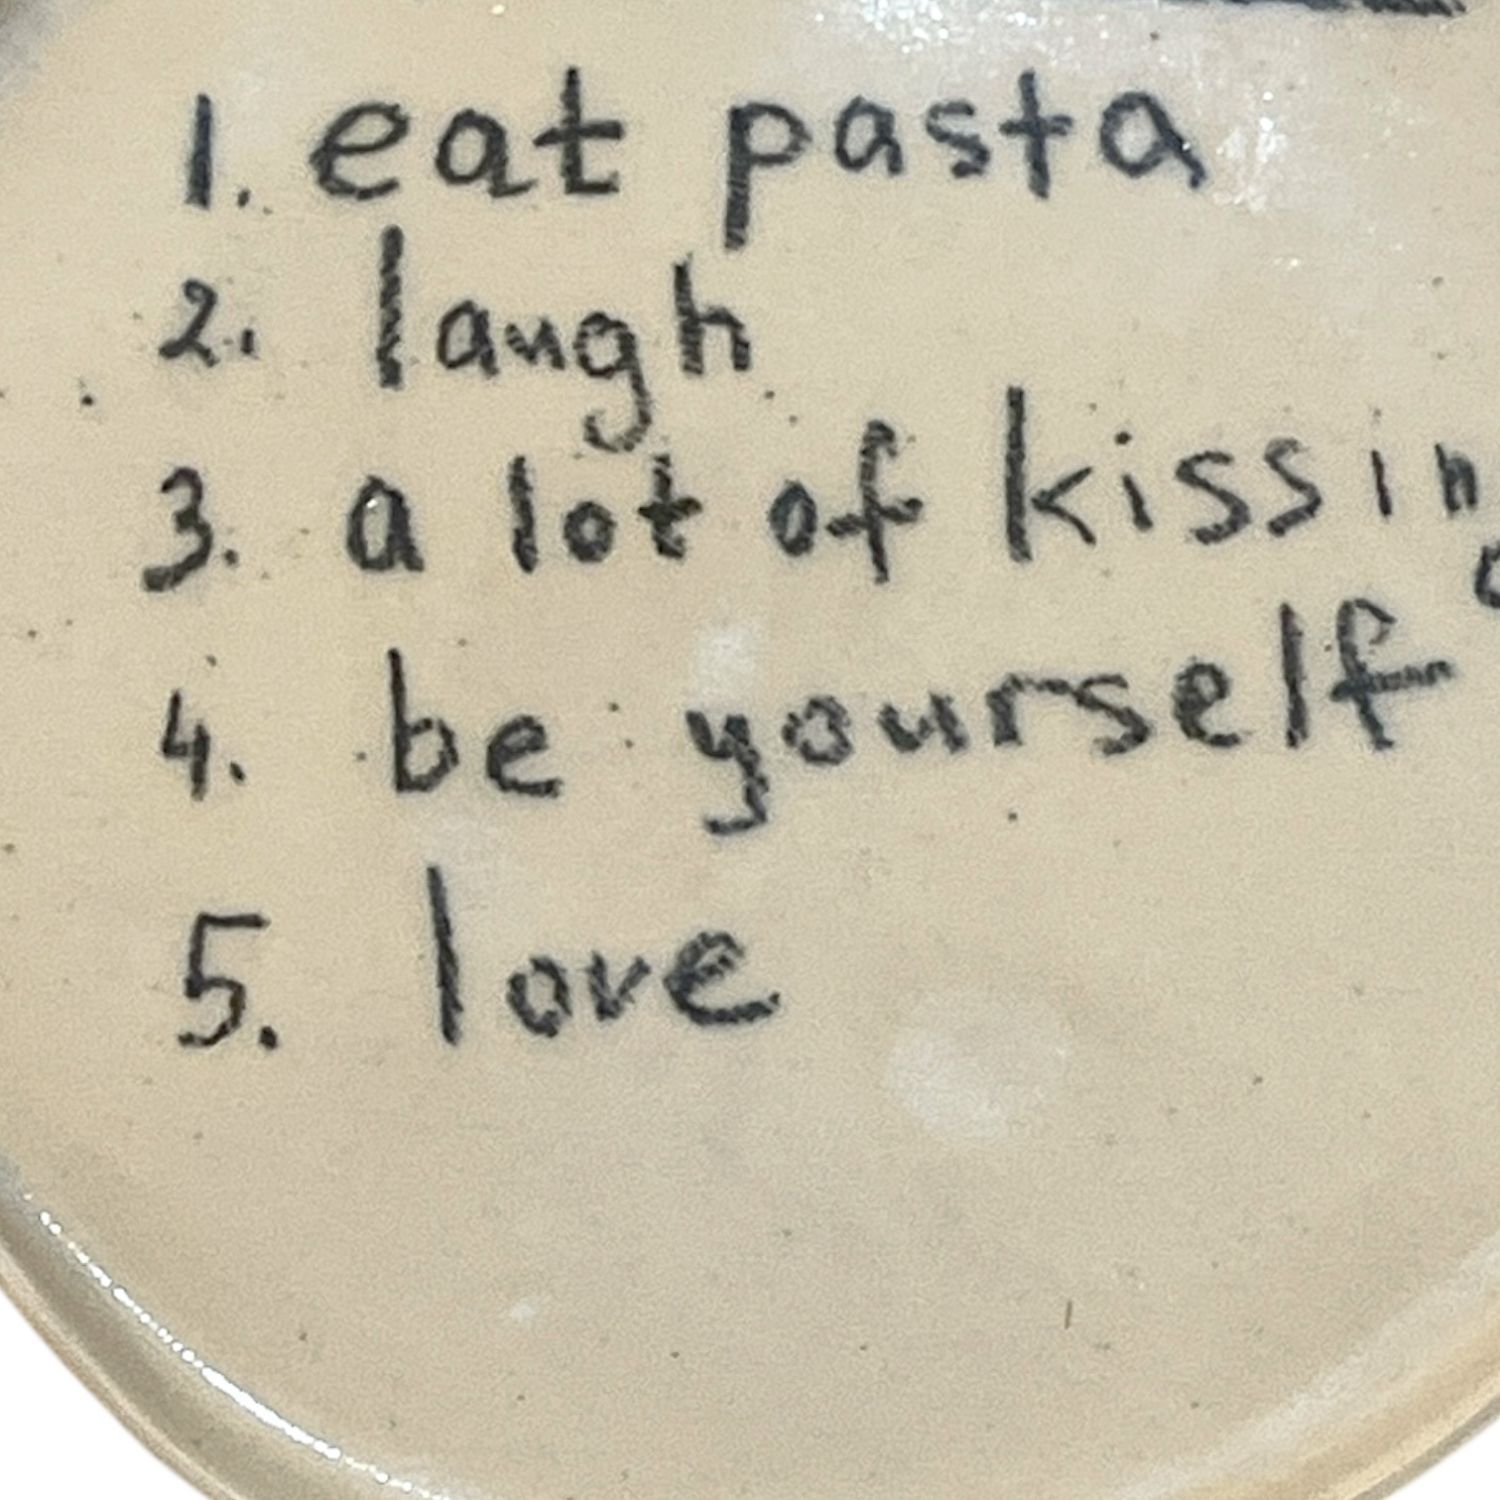 1. eat pasta
2. laugh
3. a lot of kissing
4. be yourself
5. love